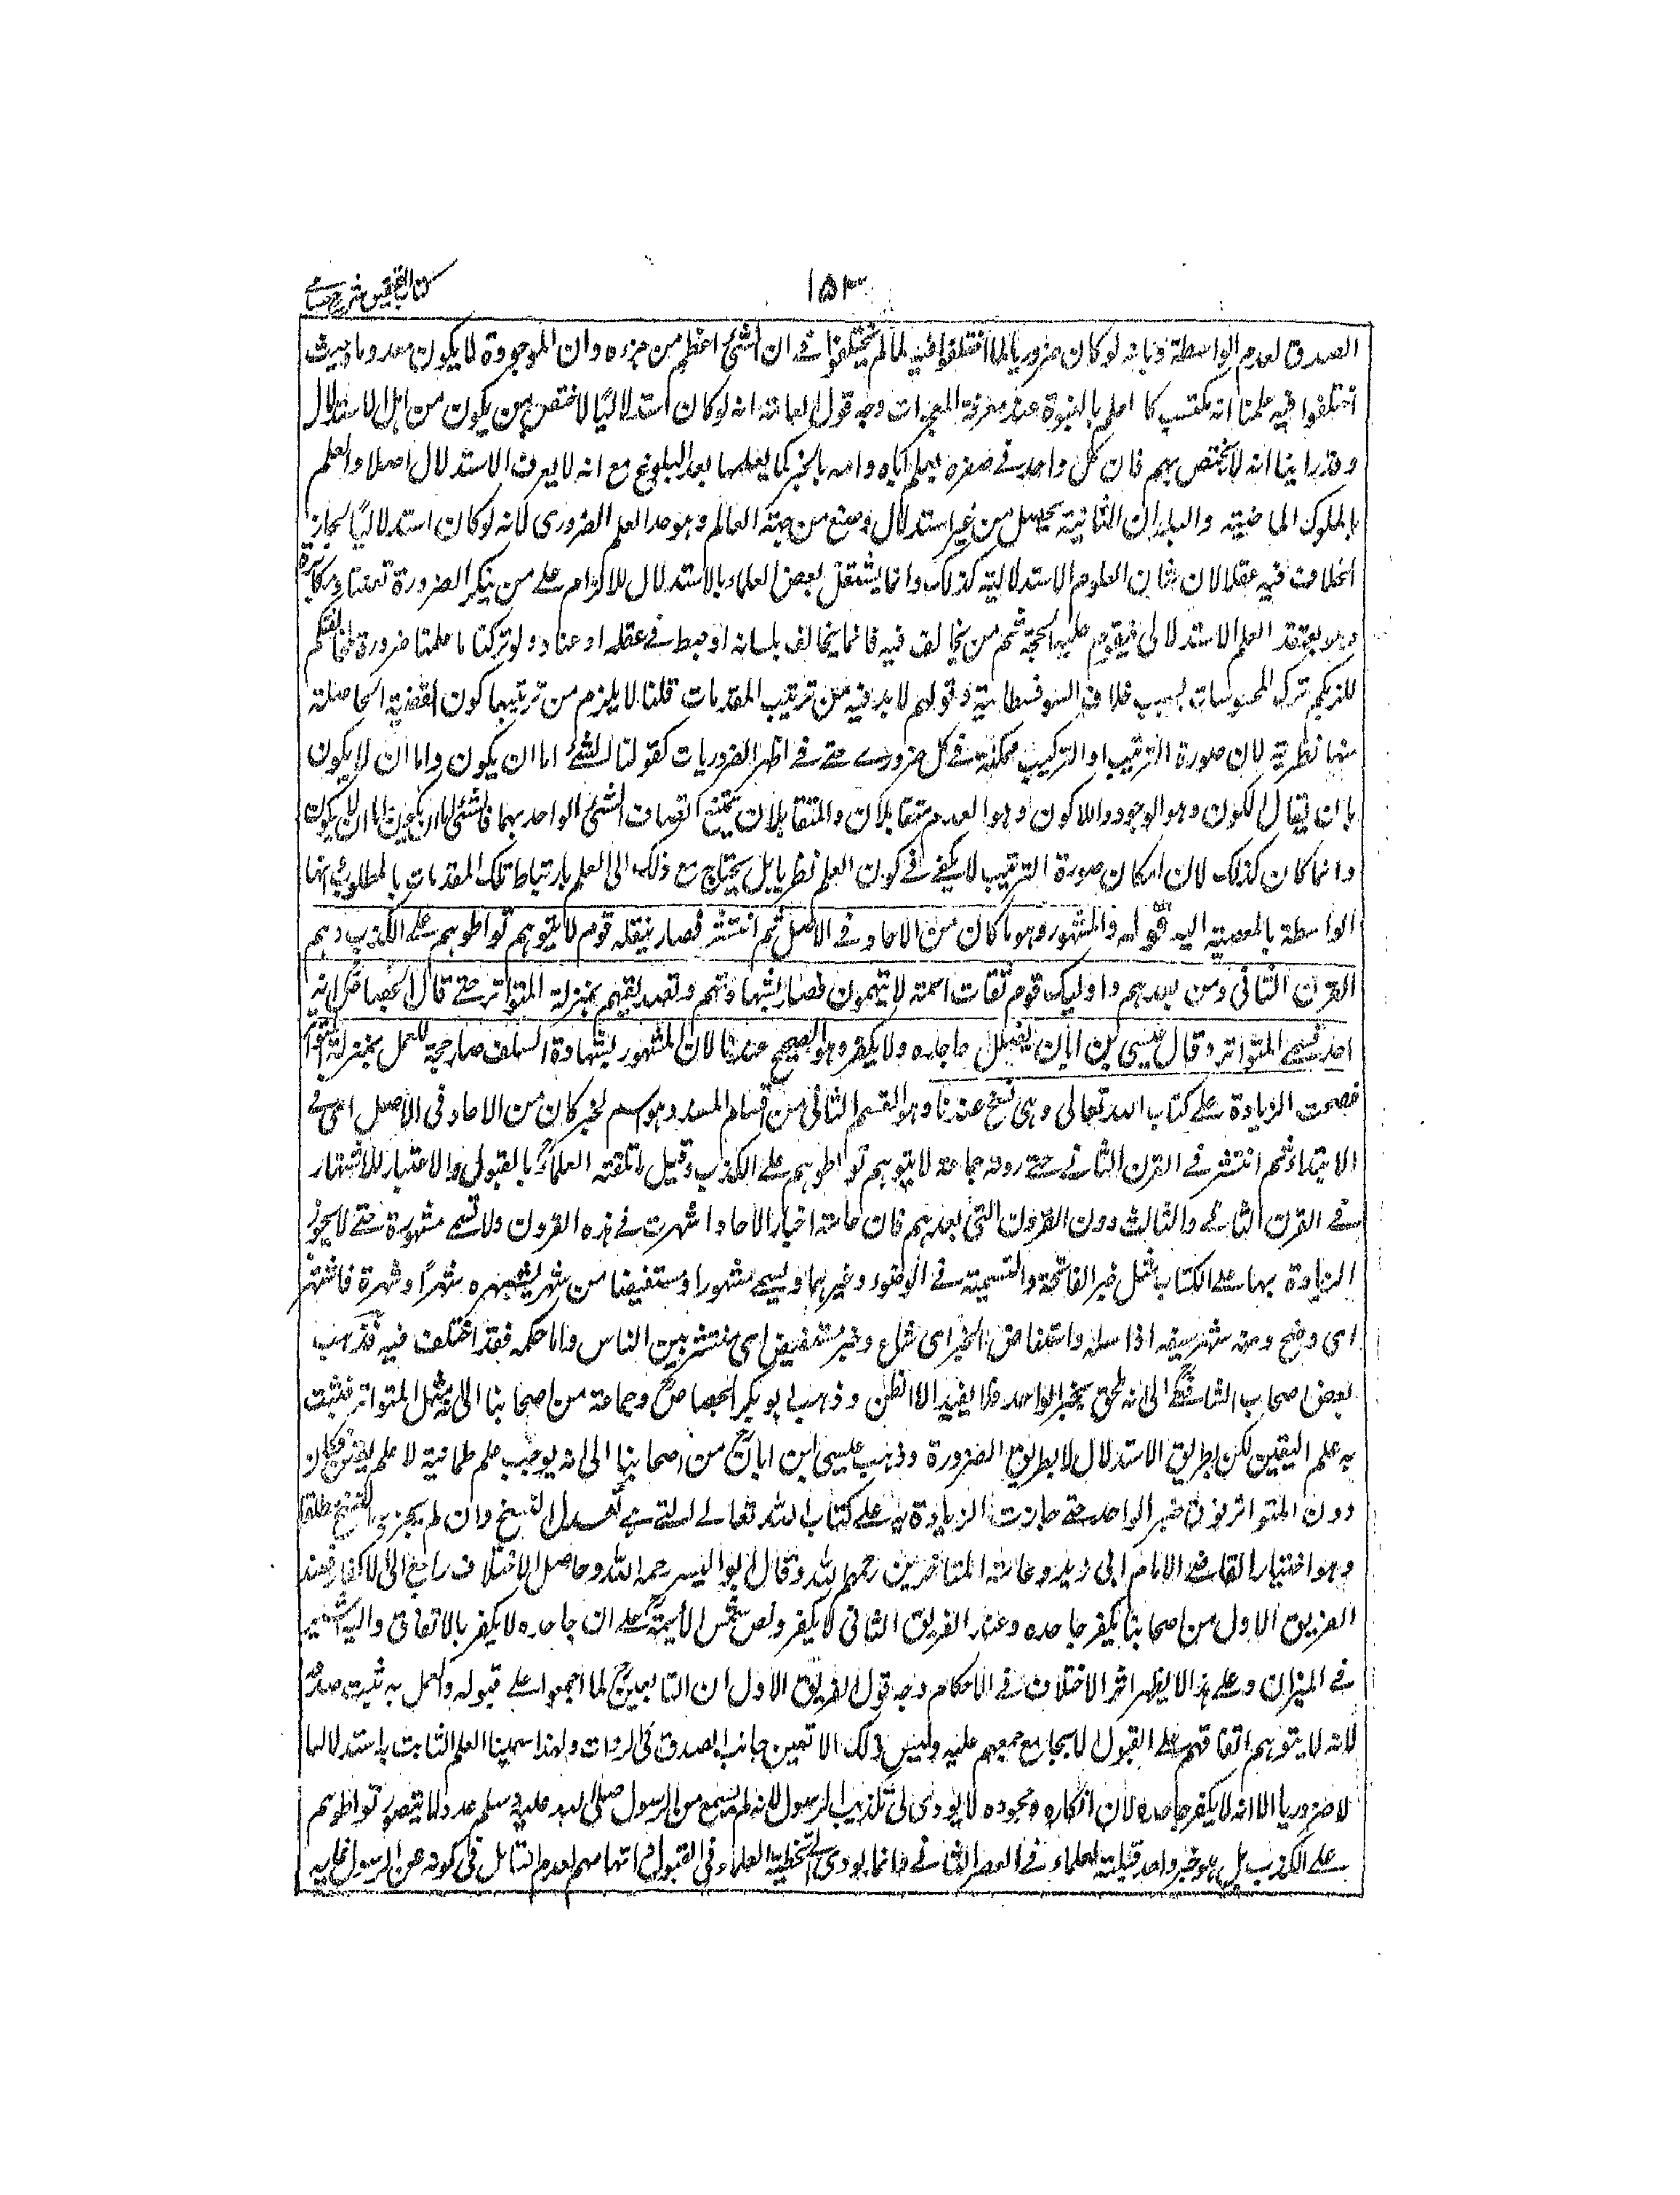 ١٥٣
كتاب التحقيق شرح حسامي
الصدق لعدم الواسطة وبانه لو كان ضروريا لما اختلفوا فيه لما لم يختلفوا في ان الشئ اعظم من جزءه وان الموجودة لا يكون معدوما وحيث
اختلفوا فيه علمنا انه مكتسب كا لعلم بالنبوة عند معرفة المعجزات وجه قول العامة انه لو كان استدلاليًا لاختص بمن يكون من اهل الاستدلال
وقد راينا انه لا يختص بهم فان كل واحد في صغره يعلم اباه وامه بالخبر كما يعلمها بعد البلوغ مع انه لا يعرف الاستدلال اصلا والعلم
بالملوك الماضية والبلدان النائية يحصل من غير استدلال وصنع من جهة العالم وهو حد العلم الضروري لانه لو كان استدلاليًا لجاز
الخلاف فيه عقلا لان شان العلوم الاستدلالية كذلك وانما يشتغل بعض العلماء بالاستدلال للالزام على من ينكر الضرورة تعنتا ومكابرة
وهو يعتقد العلم الاستدلالي فيقوم عليه الحجة ثم من يخالف فيه فانما يخالف بلسانه او خبط في عقله او عناد ولو تركنا ما علمنا ضرورة لمخالفتكم
للزمكم ترك المحسوسات بسبب خلاف السوفسطائية وقولهم لا بد فيه من ترتيب المقدمات قلنا لا يلزم من ترتيبها كون القضية الحاصلة
منها نظرية لان صورة الترتيب او التركيب ممكنة في كل ضروري حتى في اظهر الضروريات كقولنا الشئ اما ان يكون واما ان لا يكون
بان يقال الكون وهو الوجود واللاكون وهو العدم متقابلان والمتقابلان يمتنع اتصاف الشئ الواحد بهما فالشئ اما ان يكون واما ان لا يكون
وانما كان كذلك لان امكان صورة الترتيب لا يكفي في كون العلم نظريا بل يحتاج مع ذلك الى العلم بارتباط تلك المقدمات بالمطلوب وانها
الواسطة بالمعصية اليه قوله والمشهور وهو ما كان من الاحاد في الاصل ثم انتشر فصار ينقله قوم لا يتوهم تواطوهم على الكذب وهم
القرن الثاني ومن بعدهم واوليك قوم ثقات ائمة لا يتهمون فصار بشهادتهم وتصديقهم بمنزلة المتواتر حتى قال الجصاص انه
احد قسمي المتواتر وقال عيسى بن ابان يضلل جاحده ولا يكفر وهو الصحيح عندنا لان المشهور بشهادة السلف صار حجة للعمل بمنزلة المتواتر
فصحت الزيادة على كتاب الله تعالى وهي نسخ عندنا وهو القسم الثاني من اقسام المسند وهو اسم لخبر كان من الاحاد في الاصل اي في
الابتداء ثم انتشر في القرن الثاني حتى روته جماعة لا يتوهم تواطوهم على الكذب وقيل ما تلقته العلماء بالقبول والاعتبار للاشتهار
في القرن الثاني والثالث دون القرون التي بعدهم فان عامة اخبار الاحاد اشتهرت في هذه القرون ولا تسمى مشهورة حتى لا يجوز
الزيادة بها على الكتاب مثل خبر الفاتحة والتسمية في الوضوء وغيرهما ويسمى مشهورا ومستفيضا من شهر يشهره شهرًا وشهرة فاشتهر
اي وضح ومنه شهر سيفه اذا سله واستفاض الخبر اي شاع وخبر مستفيض اي منتشر بين الناس واما حكمه فقد اختلف فيه فذهب
بعض اصحاب الشافعي الى انه ملحق بخبر الواحد فلا يفيد الا الظن وذهب ابو بكر الجصاص وجماعة من اصحابنا الى انه مثل المتواتر فثبت
به علم اليقين لكن بطريق الاستدلال لا بطريق الضرورة وذهب عيسى ابن ابان من اصحابنا الى انه يوجب علم طمانية لا علم يقين فكان
دون المتواتر فوق خبر الواحد حتى جازت الزيادة به على كتاب الله تعالى التي هي تعدل النسخ وان لم يجز به النسخ مطلقا
وهو اختيار القاضي الامام ابي زيد وعامة المتاخرين رحمهم الله وقال ابو اليسر رحمه الله وحاصل الاختلاف راجع الى الاكفار فعند
الفريق الاول من اصحابنا يكفر جاحده وعند الفريق الثاني لا يكفر ونص شمس الايمة على ان جاحده لا يكفر بالاتفاق واليه اشير
في الميزان وعلى هذا لا يظهر اثر الاختلاف في الاحكام وجه قول الفريق الاول ان التابعين لما اجمعوا على قبوله والعمل به ثبت صدقه
لانه لا يتوهم اتفاقهم على القبول الا بجامع جمعهم عليه وليس ذلك الا تعين جانب الصدق في الروات ولهذا سمينا العلم الثابت به استدلاليا
لا ضروريا الا انه لا يكفر جاحده لان انكاره وجحوده لا يودي الى تكذيب الرسول لانه لم يسمع من الرسول صلى الله عليه وسلم عدد لا يتصور تواطوهم
على الكذب بل هو خبر واحد قبلته العلماء في العصر الثاني وانما يودي الى تخطية العلماء في القبول واتهامهم لعدم التامل في كونه عن الرسول عليه